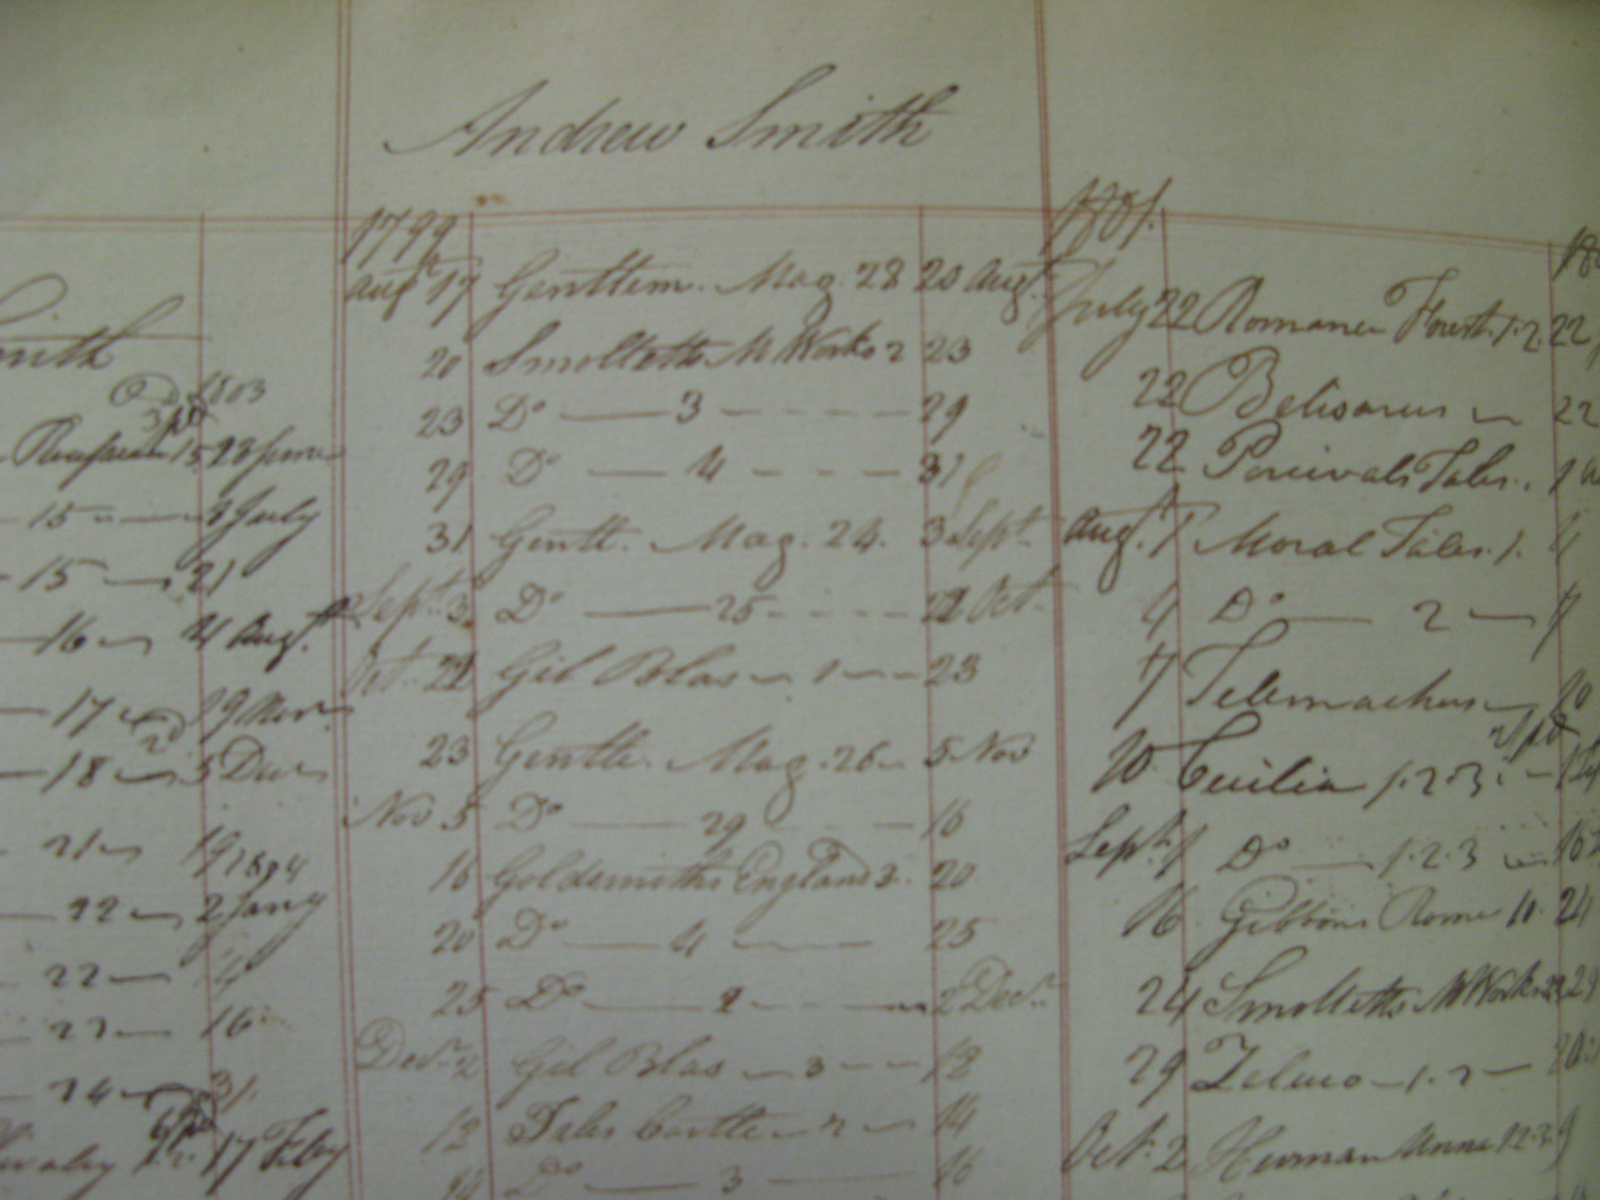 Andrew Smith
1799
Augt 17 Gentlem. Mag. 28 20 Augt
20 Smolletts M Works 2 23
23 Do 3 29
29 Do 4 31
31 Gentl. Mag. 24. 3 Sept
Sept. 3 Do 25 22 Oct.
Oct. 22 Gil Blas 1 23
23 Gentle. Mag. 26 5 Nov
Nov 5 Do 29 16
16 Goldsmiths England 3. 20
20 Do 4 25
25 Do 2 Decr.
Decr. 2 Gil Blas 3 12
12 Tales Castle 2 14
14 Do 3 16
1801.
July 22 Romance Forest. 1.2. 22
22 Belisarius 22
22 Percivals Tales. 1
Augt. 1 Moral Tales. 1. 4
4 Do 2 7
7 Telemachus 10
10 Cecilia 1.2.3.
Sept. 1 Do 1.2.3 16
16 Gibbons Rome 11. 24
24 Smolletts M Works 29
29 Zeluco 1.2
Oct. 2 Herman Unna 1.2.3
mith
1803
15 28 June
15 8 July
15 21
16 4 Augt.
17 19 Nov
18 5 Decr
21 19
1804
22 2 Jany
22 4
16
24 31
17 Feby